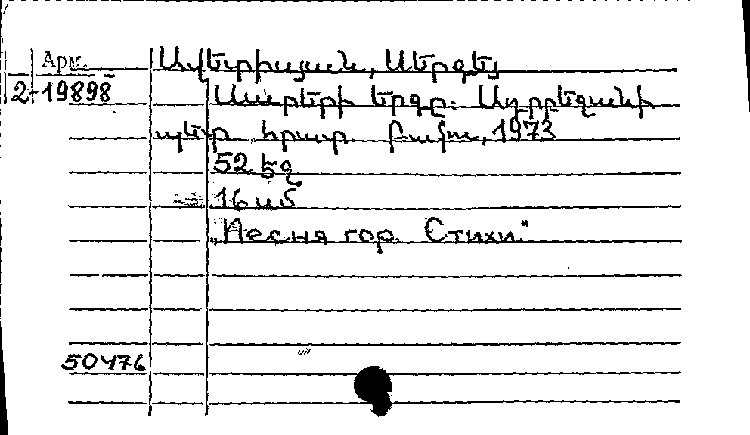 Арм.
2-19898
Ավետիսյան, Սերգեյ
Սարերի երգը: Ադրբեջանի
պետ. հրատ. Բաքու, 1973
52 եջ
16 սմ
„Песня гор. Стихи"
50476